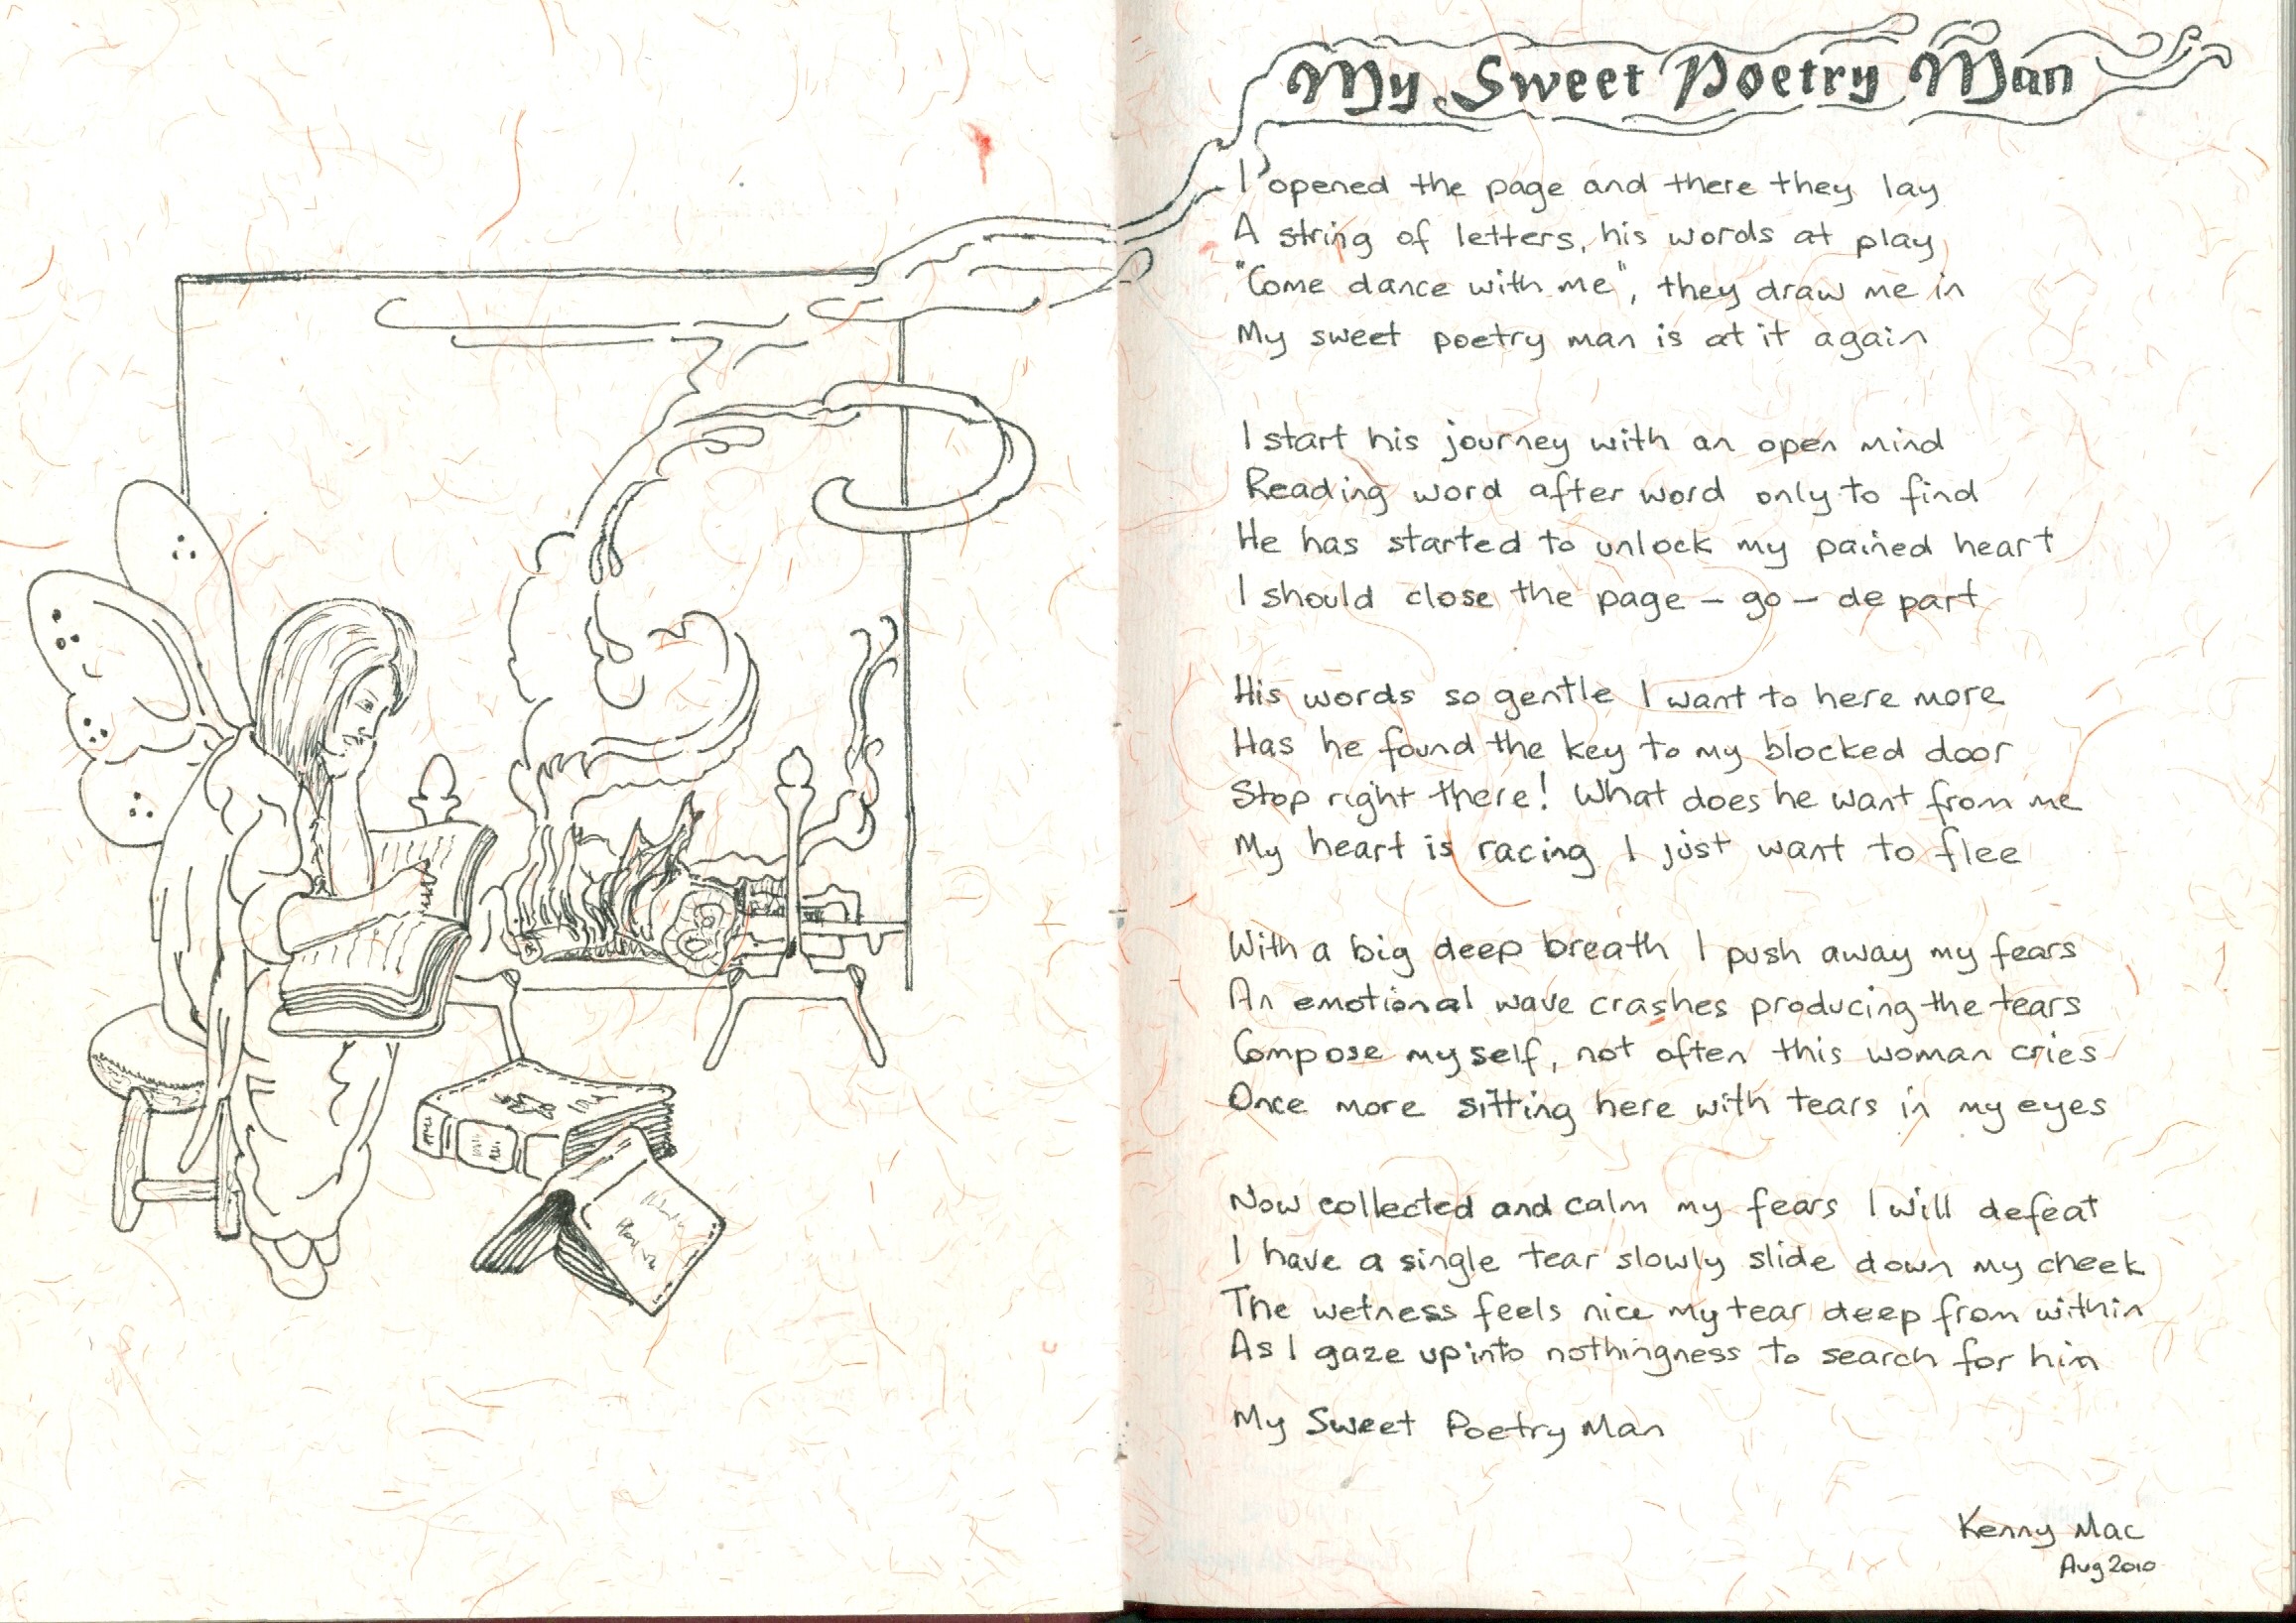 My Sweet Poetry Man
I opened the page and there they lay
A string of letters, his words at play
"Come dance with me", they draw me in
My sweet poetry man is at it again
I start his journey with an open mind
Reading word after word only to find
He has started to unlock my pained heart
I should close the page - go - depart
His words so gentle I want to here more
Has he found the key to my blocked door
Stop right there! What does he want from me
My heart is racing I just want to flee
With a big deep breath I push away my fears
An emotional wave crashes producing the tears
Compose myself, not often this woman cries
Once more sitting here with tears in my eyes
Now collected and calm my fears I will defeat
I have a single tear slowly slide down my cheek
The wetness feels nice my tear deep from within
As I gaze up into nothingness to search for him
My Sweet Poetry Man
Kenny Mac
Aug 2010